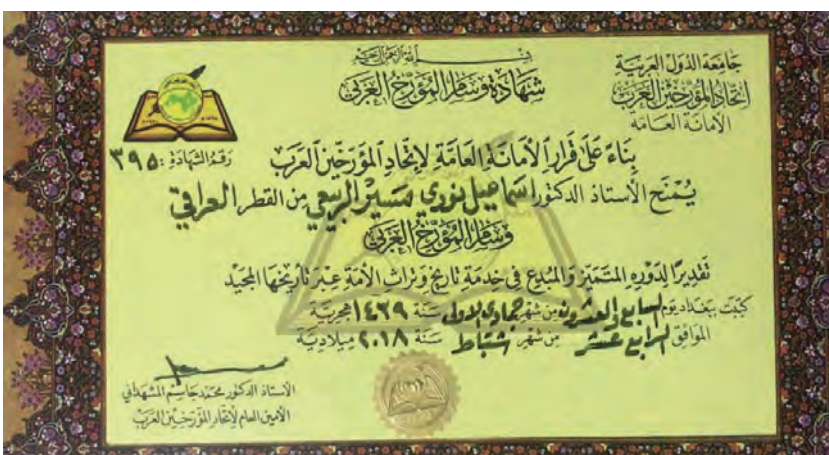 بسم الله الرحمن الرحيم
جامعة الدول العربية
اتحاد المؤرخين العرب
الأمانة العامة
شهادة وسام المؤرخ العربي
رقم الشهادة: ٣٩٥
بناءً على قرار الأمانة العامة لإتحاد المؤرخين العرب
يُمنح الأستاذ الدكتور اسماعيل نوري مسير الربيعي من القطر العراقي
وسام المؤرخ العربي
تقديرًا لدوره المتميز والمبدع في خدمة تاريخ وتراث الأمة عبر تأريخها المجيد
كتبت ببغداد يوم السابع والعشرون من شهر جمادي الاولى سنة ١٤٣٩ هجرية
الموافق الرابع عشر من شهر شباط سنة ٢٠١٨ ميلادية
الأستاذ الدكتور محمد جاسم المشهداني
الأمين العام لإتحاد المؤرخين العرب